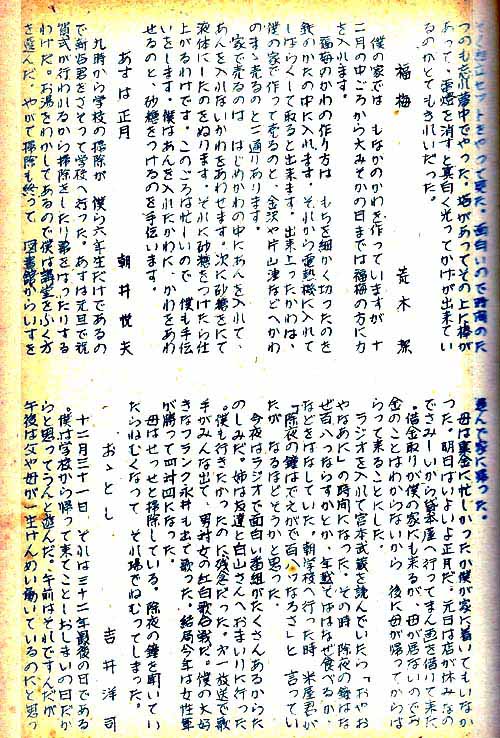 つのも忘れ夢中でやった。塔があってその上に棒が
あって、電燈を消すと真白く光ってかげが出来てい
るのがとてもきれいだった。
福梅
荒木 潔
僕の家では もなかのかわを作っていますが 十
二月の中ごろから大みそかの日までは福梅の方に力
を入れます。
福梅のかわの作り方は もちを細かく切ったのを
鉄のかたの中に入れます。それから電熱機に入れて
しばらくして取ると出来ます。出来上ったかわは、
僕の家で作って売るのと、金沢や片山津などへかわ
のまゝ売るのと二通りあります。
家で売るのは はじめかわの中にあんを入れて、
あんを入れないかわをあわせます。次に砂糖をにて
液体にしたのをぬります。それに砂糖をつけたら仕
上がるわけです。このごろは忙しいので 僕も手伝
いをします。僕はあんを入れたかわに、かわをあわ
せるのと、砂糖をつけるのを手伝います。
あすは正月
朝井 悦夫
九時から学校の掃除が 僕ら六年生だけであるの
で新治君をさそって学校へ行った。あすは元旦で祝
賀式が行われるから掃除をしたり幕をはったりする
わけだ。お湯をわかしてあるので僕は講堂をふく方
を選んだ。やがて掃除も終って 図書館からいすを
運んで家に帰った。
母は集金に忙しかったが僕が家に着いてもいなか
った。明日はいよいよ正月だ。元日は店が休みなの
でさみしいから貸本屋へ行ってまん画を借りて来た
。借金取りが僕の家にも来るが、母が居ないのでお
金のことはわからないから 後に母が帰ってからは
らって来ることにした。
ラジオを入れて宮本武蔵を読んでいたら「おやお
やなあに」の時間になった。その時 除夜の鐘はな
ぜ百八つならすかとか、年越そばはなぜ食べるか、
などをはなしていた。朝学校へ行った時 米屋君が
「除夜の鐘はでえがで百八つなろさ」と 言ってい
たが なるほどそうかと思った。
今夜はラジオで面白い番組がたくさんあるからた
のしみだ。姉は友達と白山さんへおまいりに行った
。僕も行きたかったのに残念だった。才一放送で歌
手がみんな出て、男対女の紅白歌合戦だ。僕の大好
きなフランク永井も出て歌った。結局今年は女性軍
が勝って四対四になった。
母はせっせと掃除している。除夜の鐘を聞いてい
たらねむくなって その場でねむってしまった。
おゝとし
吉井 洋司
十二月三十一日、それは三十二年最後の日である
。僕は学校から帰って来てことしおしまいの日だか
らと思ってうんと遊んだ。午前はそれですんだが
午後は父や母が一生けんめい働いているのだと思っ